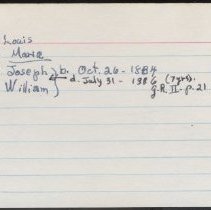 Louis
Marie
Joseph } b. Oct. 26 - 1884
William } d. July 31 - 1886 (7yrs).
G.R. II. p. 21